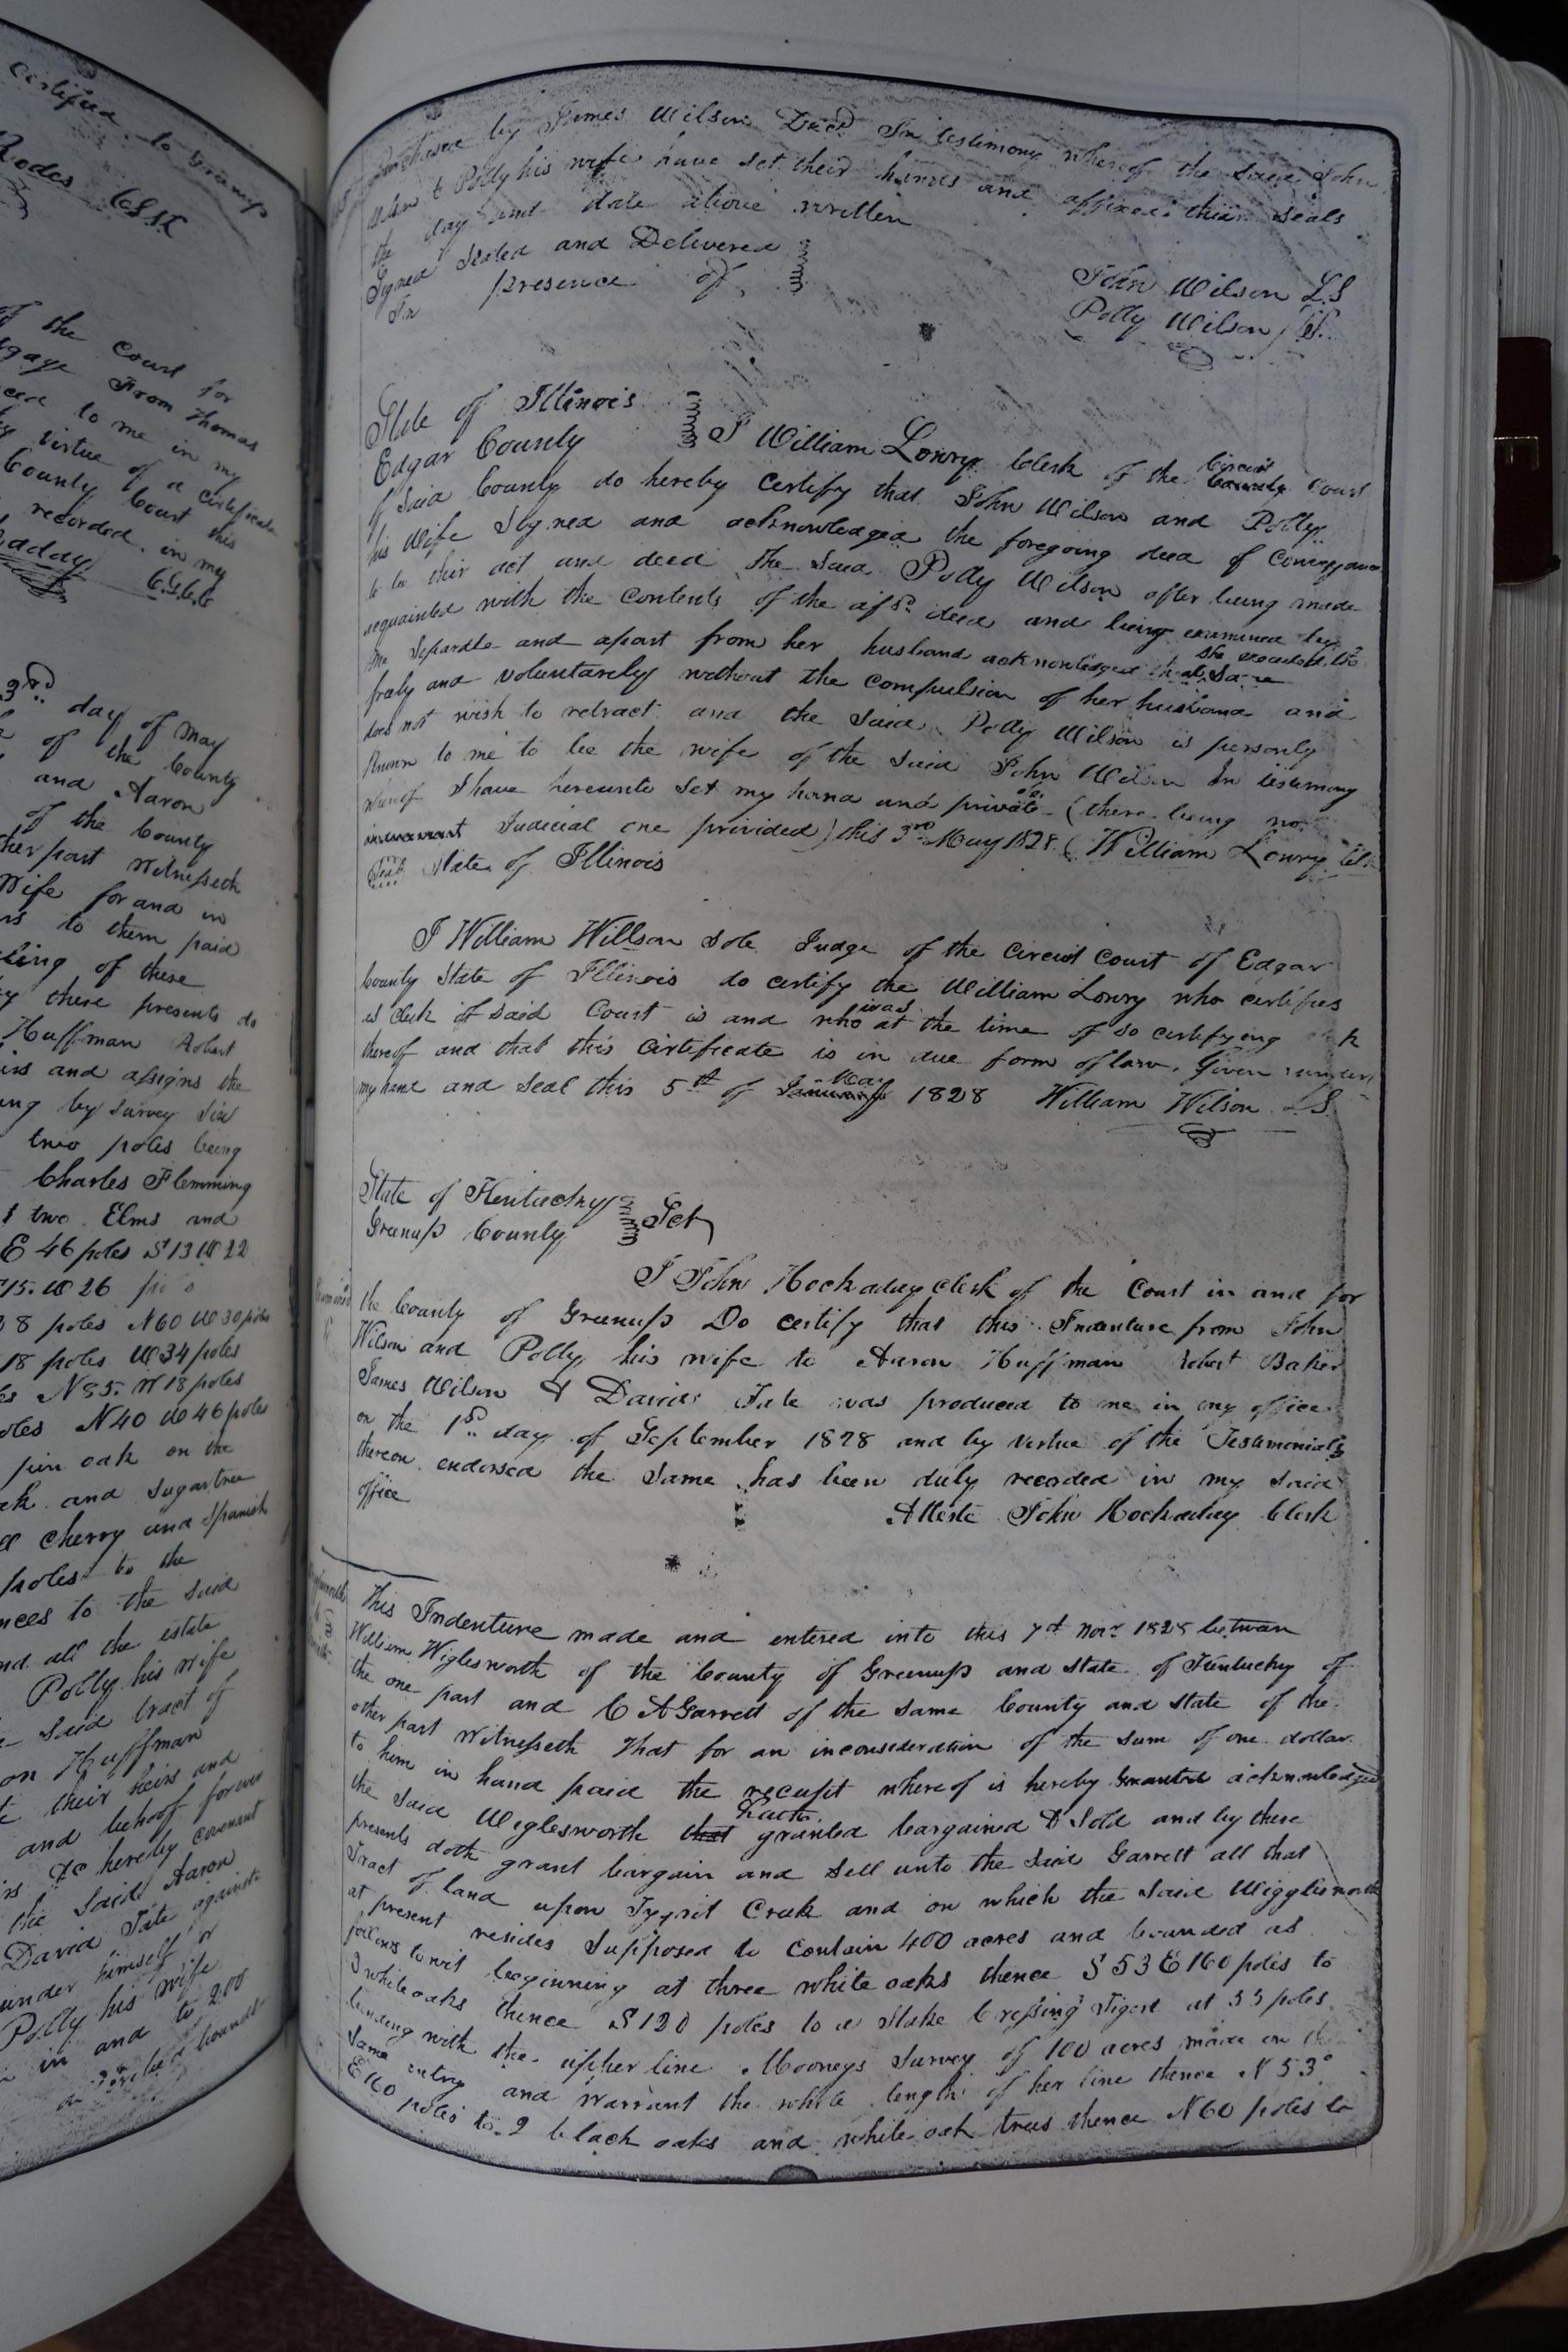 certified to Greenup
Rodes
of the Court for
gage From Thomas
to me in my
virtue of a certificate
County Court this
recorded in my
3rd day of May
of the County
and Aaron
of the County
her part Witnesseth
Wife for and in
to them paid
these
these presents do
Huffman Robert
and assigns the
by survey
two poles being
Charles Flemming
two Elms and
E 46 poles S 13 W 22
15. W 26
8 poles N 60 W 30 poles
18 poles W 34 poles
N 85. W 18 poles
N 40 W 46 poles
pin oak on the
and sugartree
cherry and Spanish
poles to the
to the said
and all the estate
Polly his wife
said tract of
Huffman
their heirs and
and behoof forever
&c hereby covenant
the said Aaron
David Tate against
under himself or
Polly his wife
in and to 200
bounds
by James Wilson Decd In testimony whereof the said John
Wilson & Polly his wife have set their hands and affixed their seals
the day and date above written
Signed Sealed and Delivered
In presence of
John Wilson LS
Polly Wilson LS
State of Illinois
Edgar County I William Lowry Clerk of the Circuit Court
of said County do hereby certify that John Wilson and Polly
his Wife Signed and acknowledged the foregoing deed of Conveyance
to be their act and deed the said Polly Wilson after being made
acquainted with the contents of the afsd deed and being examined by
me Separate and apart from her husband acknowledged that she executed the same
freely and voluntarely without the compulsion of her husband and
does not wish to retract and the said Polly Wilson is personly
Known to me to be the wife of the said John Wilson In testimony
whereof I have hereunto set my hand and private (there being no
Judicial one provided) this 3rd May 1828 William Lowry Clk
Seal State of Illinois
I William Willson Sole Judge of the Circuit Court of Edgar
County State of Illinois do certify the William Lowry who certifies
as clerk of said Court is and who was at the time of so certifying
thereof and that this Certificate is in due form of law. Given under
my hand and Seal this 5th of May 1828 William Wilson LS
State of Kentucky
Greenup County Sct
I John Hockaday Clerk of the Court in and for
the County of Greenup Do certify that this Indenture from John
Wilson and Polly his wife to Aaron Huffman Robert Baker
James Wilson & David Tate was produced to me in my office
on the 1st day of September 1828 and by virtue of the Testimonials
thereon endorsed the Same has been duly recorded in my said
office
Atteste John Hockaday Clerk
This Indenture made and entered into this 7d Novr 1828 between
William Wiglesworth of the County of Greenup and state of Kentucky of
the one part and C A Garrett of the same County and state of the
other part Witnesseth That for an inconsideration of the sum of one dollar
to him in hand paid the receipt whereof is hereby granted acknowledged
the said Wiglesworth that hath granted bargained & Sold and by these
presents doth grant bargain and sell unto the said Garrett all that
Tract of land upon Tygart Creek and on which the said Wigglesworth
at present resides Supposed to contain 400 acres and bounded as
follows to wit beginning at three white oaks thence S 53 E 160 poles to
3 white oaks thence S 120 poles to a Stake Crossing Tigert at 33 poles
binding with the upher line Mooneys Survey of 100 acres made on the
Same entry and Warrant the whole length of her line thence N 53°
E 160 poles to 2 black oaks and white oak trees thence N 60 poles to